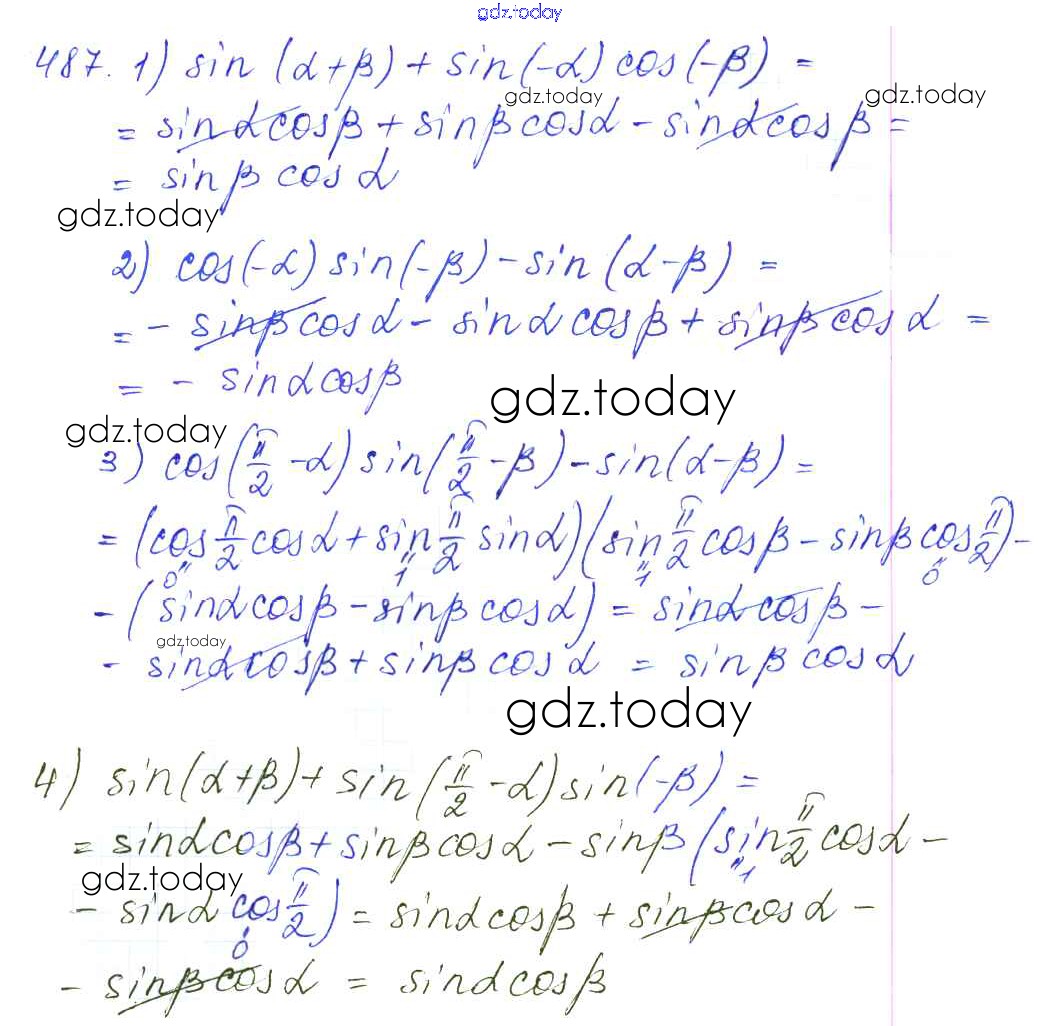 gdz.today
487. 1) sin (α+β) + sin(-α) cos(-β) =
gdz.today gdz.today
= sinαcosβ + sinβcosα - sinαcosβ =
= sinβ cosα
gdz.today
2) cos(-α) sin(-β) - sin(α-β) =
= - sinβcosα - sinαcosβ + sinβcosα =
= - sinαcosβ
gdz.today
gdz.today
3) cos(π/2 - α) sin(π/2 - β) - sin(α-β) =
= (cos π/2 cosα + sin π/2 sinα)(sin π/2 cosβ - sinβ cos π/2) -
"0 "1 "1 "0
- (sinαcosβ - sinβcosα) = sinαcosβ -
gdz.today
- sinαcosβ + sinβcosα = sinβcosα
gdz.today
4) sin(α+β) + sin(π/2 - α) sin(-β) =
= sinαcosβ + sinβcosα - sinβ (sin π/2 cosα -
"1
gdz.today
- sinα cos π/2) = sinαcosβ + sinβcosα -
"0
- sinβcosα = sinαcosβ